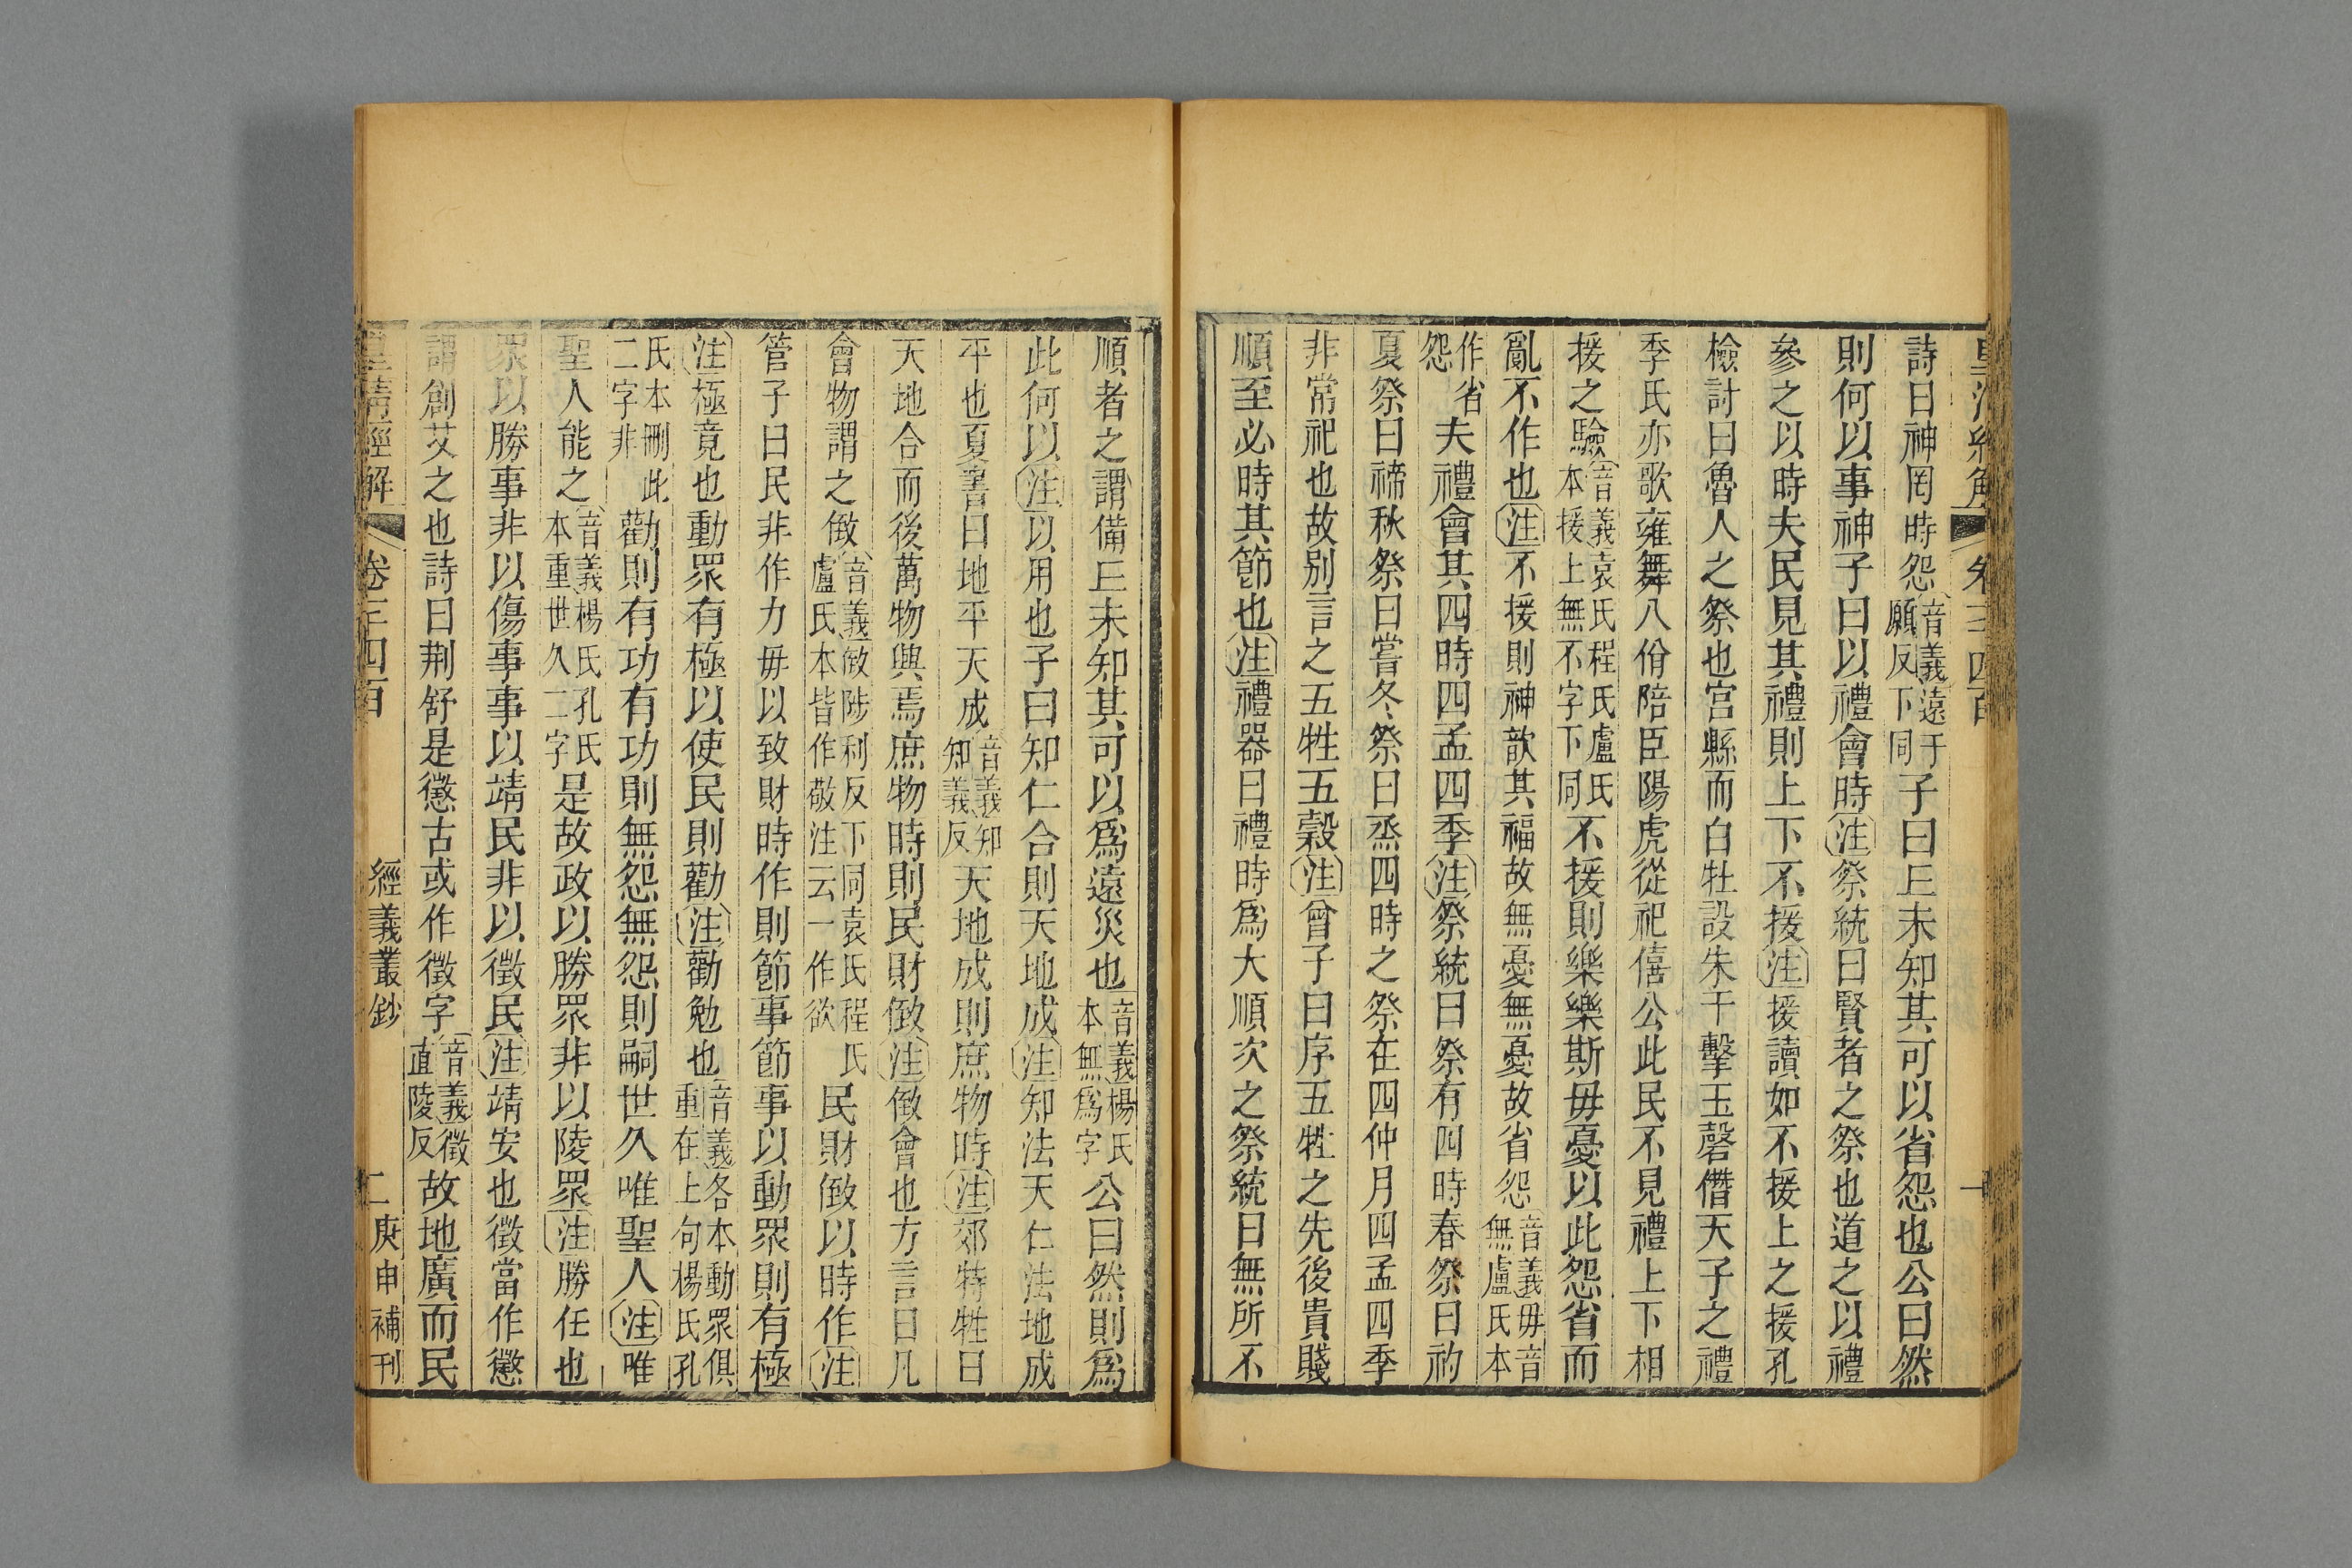 皇清經解 卷三四百 一
詩曰神罔時怨音義遠于願反下同子曰𠀉未知其可以省怨也公曰然
則何以事神子曰以禮會時注祭統曰賢者之祭也道之以禮
參之以時夫民見其禮則上下不援注援讀如不援上之援孔
檢討曰魯人之祭也宮縣而白牡設朱干擊玉磬僭天子之禮
季氏亦歌雍舞八佾陪臣陽虎從祀僖公此民不見禮上下相
援之驗音義袁氏程氏盧氏本援上無不字下同不援則樂樂斯毋憂以此怨省而
亂不作也注不援則神歆其福故無憂無憂故省怨音義毋音無盧氏本
作省怨夫禮會其四時四孟四季注祭統曰祭有四時春祭曰礿
夏祭曰禘秋祭曰嘗冬祭曰烝四時之祭在四仲月四孟四季
非常祀也故別言之五牲五穀注曾子曰序五牲之先後貴賤
順至必時其節也注禮器曰禮時爲大順次之祭統曰無所不
順者之謂備𠀉未知其可以爲遠災也音義楊氏本無爲字公曰然則爲
此何以注以用也子曰知仁合則天地成注知法天仁法地成
平也夏書曰地平天成音義知知義反天地成則庶物時注郊特牲曰
天地合而後萬物興焉庶物時則民財儆注儆會也方言曰凡
會物謂之儆音義儆陟利反下同袁氏程氏盧氏本皆作敬注云一作欲民財儆以時作注
管子曰民非作力毋以致財時作則節事節事以動眾則有極
注極竟也動眾有極以使民則勸注勸勉也音義各本動眾俱重在上句楊氏孔
氏本刪此二字非勸則有功有功則無怨無怨則嗣世久唯聖人注唯
聖人能之音義楊氏孔氏本重世久二字是故政以勝眾非以陵眾注勝任也
眾以勝事非以傷事事以靖民非以徵民注靖安也徵當作懲
謂創艾之也詩曰荆舒是懲古或作徵字音義徵直陵反故地廣而民
皇清經解 卷三四百 經義叢鈔 二 庚申補刊